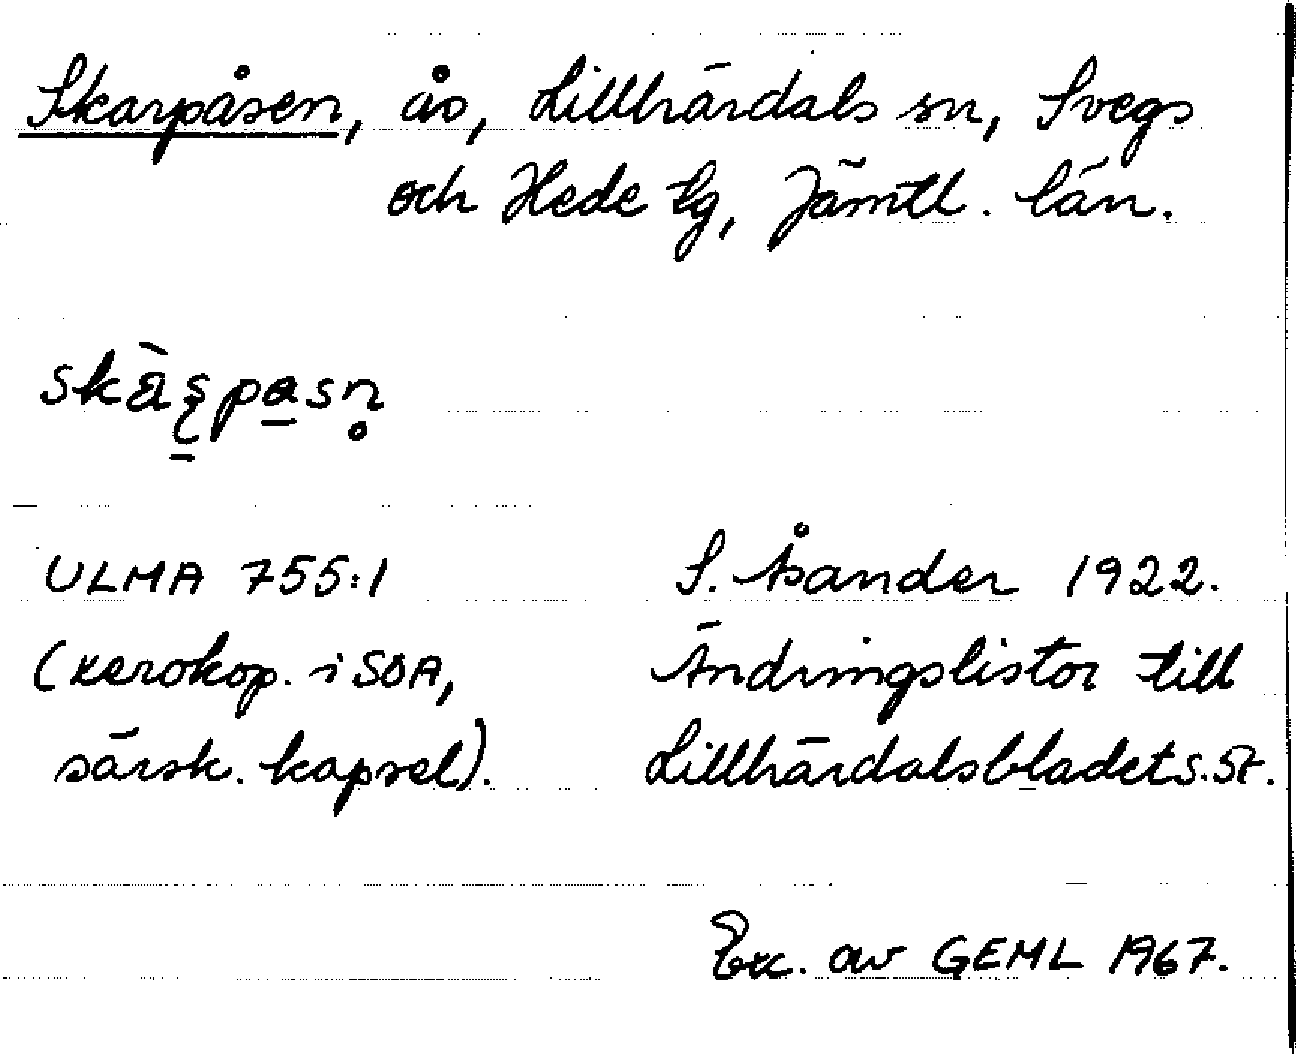 Skarpåsen, ås, Lillhärdals sn, Svegs
och Hede tg, Jämtl. län.
ULMA 755:1
S. Åsander 1922.
(xerokop. i SOA,
Ändringslistor till
särsk. kapsel).
Lillhärdalsbladet s. st.
Exc. av GEML 1967.